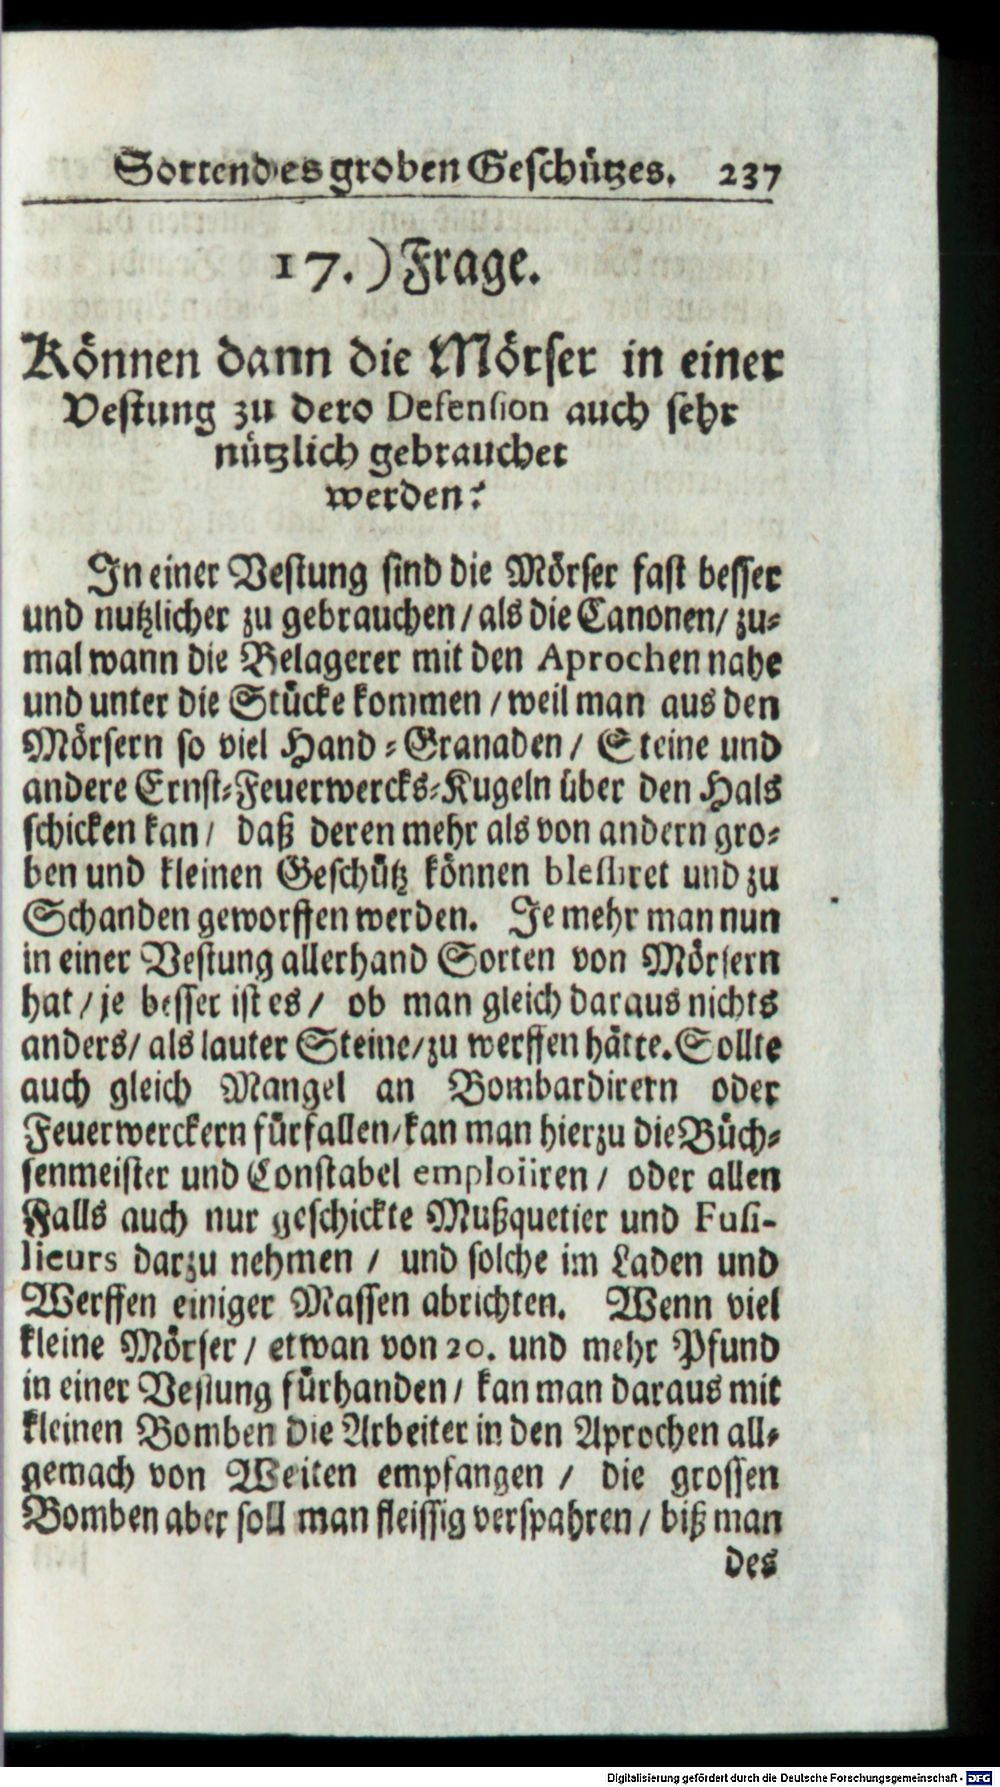 Sorten des groben Geschützes. 237
17.) Frage.
Können dann die Mörser in einer
Vestung zu dero Defension auch sehr
nützlich gebrauchet
werden?
In einer Vestung sind die Mörser fast besser
und nutzlicher zu gebrauchen / als die Canonen / zu-
mal wann die Belagerer mit den Aprochen nahe
und unter die Stücke kommen / weil man aus den
Mörsern so viel Hand-Granaden / Steine und
andere Ernst-Feuerwercks-Kugeln über den Hals
schicken kan / daß deren mehr als von andern gro-
ben und kleinen Geschütz können blessiret und zu
Schanden geworffen werden. Je mehr man nun
in einer Vestung allerhand Sorten von Mörsern
hat / je besser ist es / ob man gleich daraus nichts
anders / als lauter Steine / zu werffen hätte. Sollte
auch gleich Mangel an Bombardirern oder
Feuerwerckern fürfallen / kan man hierzu die Büch-
senmeister und Constabel emploiiren / oder allen
Falls auch nur geschickte Mußquetier und Fusi-
lieurs darzu nehmen / und solche im Laden und
Werffen einiger Massen abrichten. Wenn viel
kleine Mörser / etwan von 20. und mehr Pfund
in einer Vestung fürhanden / kan man daraus mit
kleinen Bomben die Arbeiter in den Aprochen all-
gemach von Weiten empfangen / die grossen
Bomben aber soll man fleissig verspahren / biß man
des
Digitalisierung gefördert durch die Deutsche Forschungsgemeinschaft - DFG